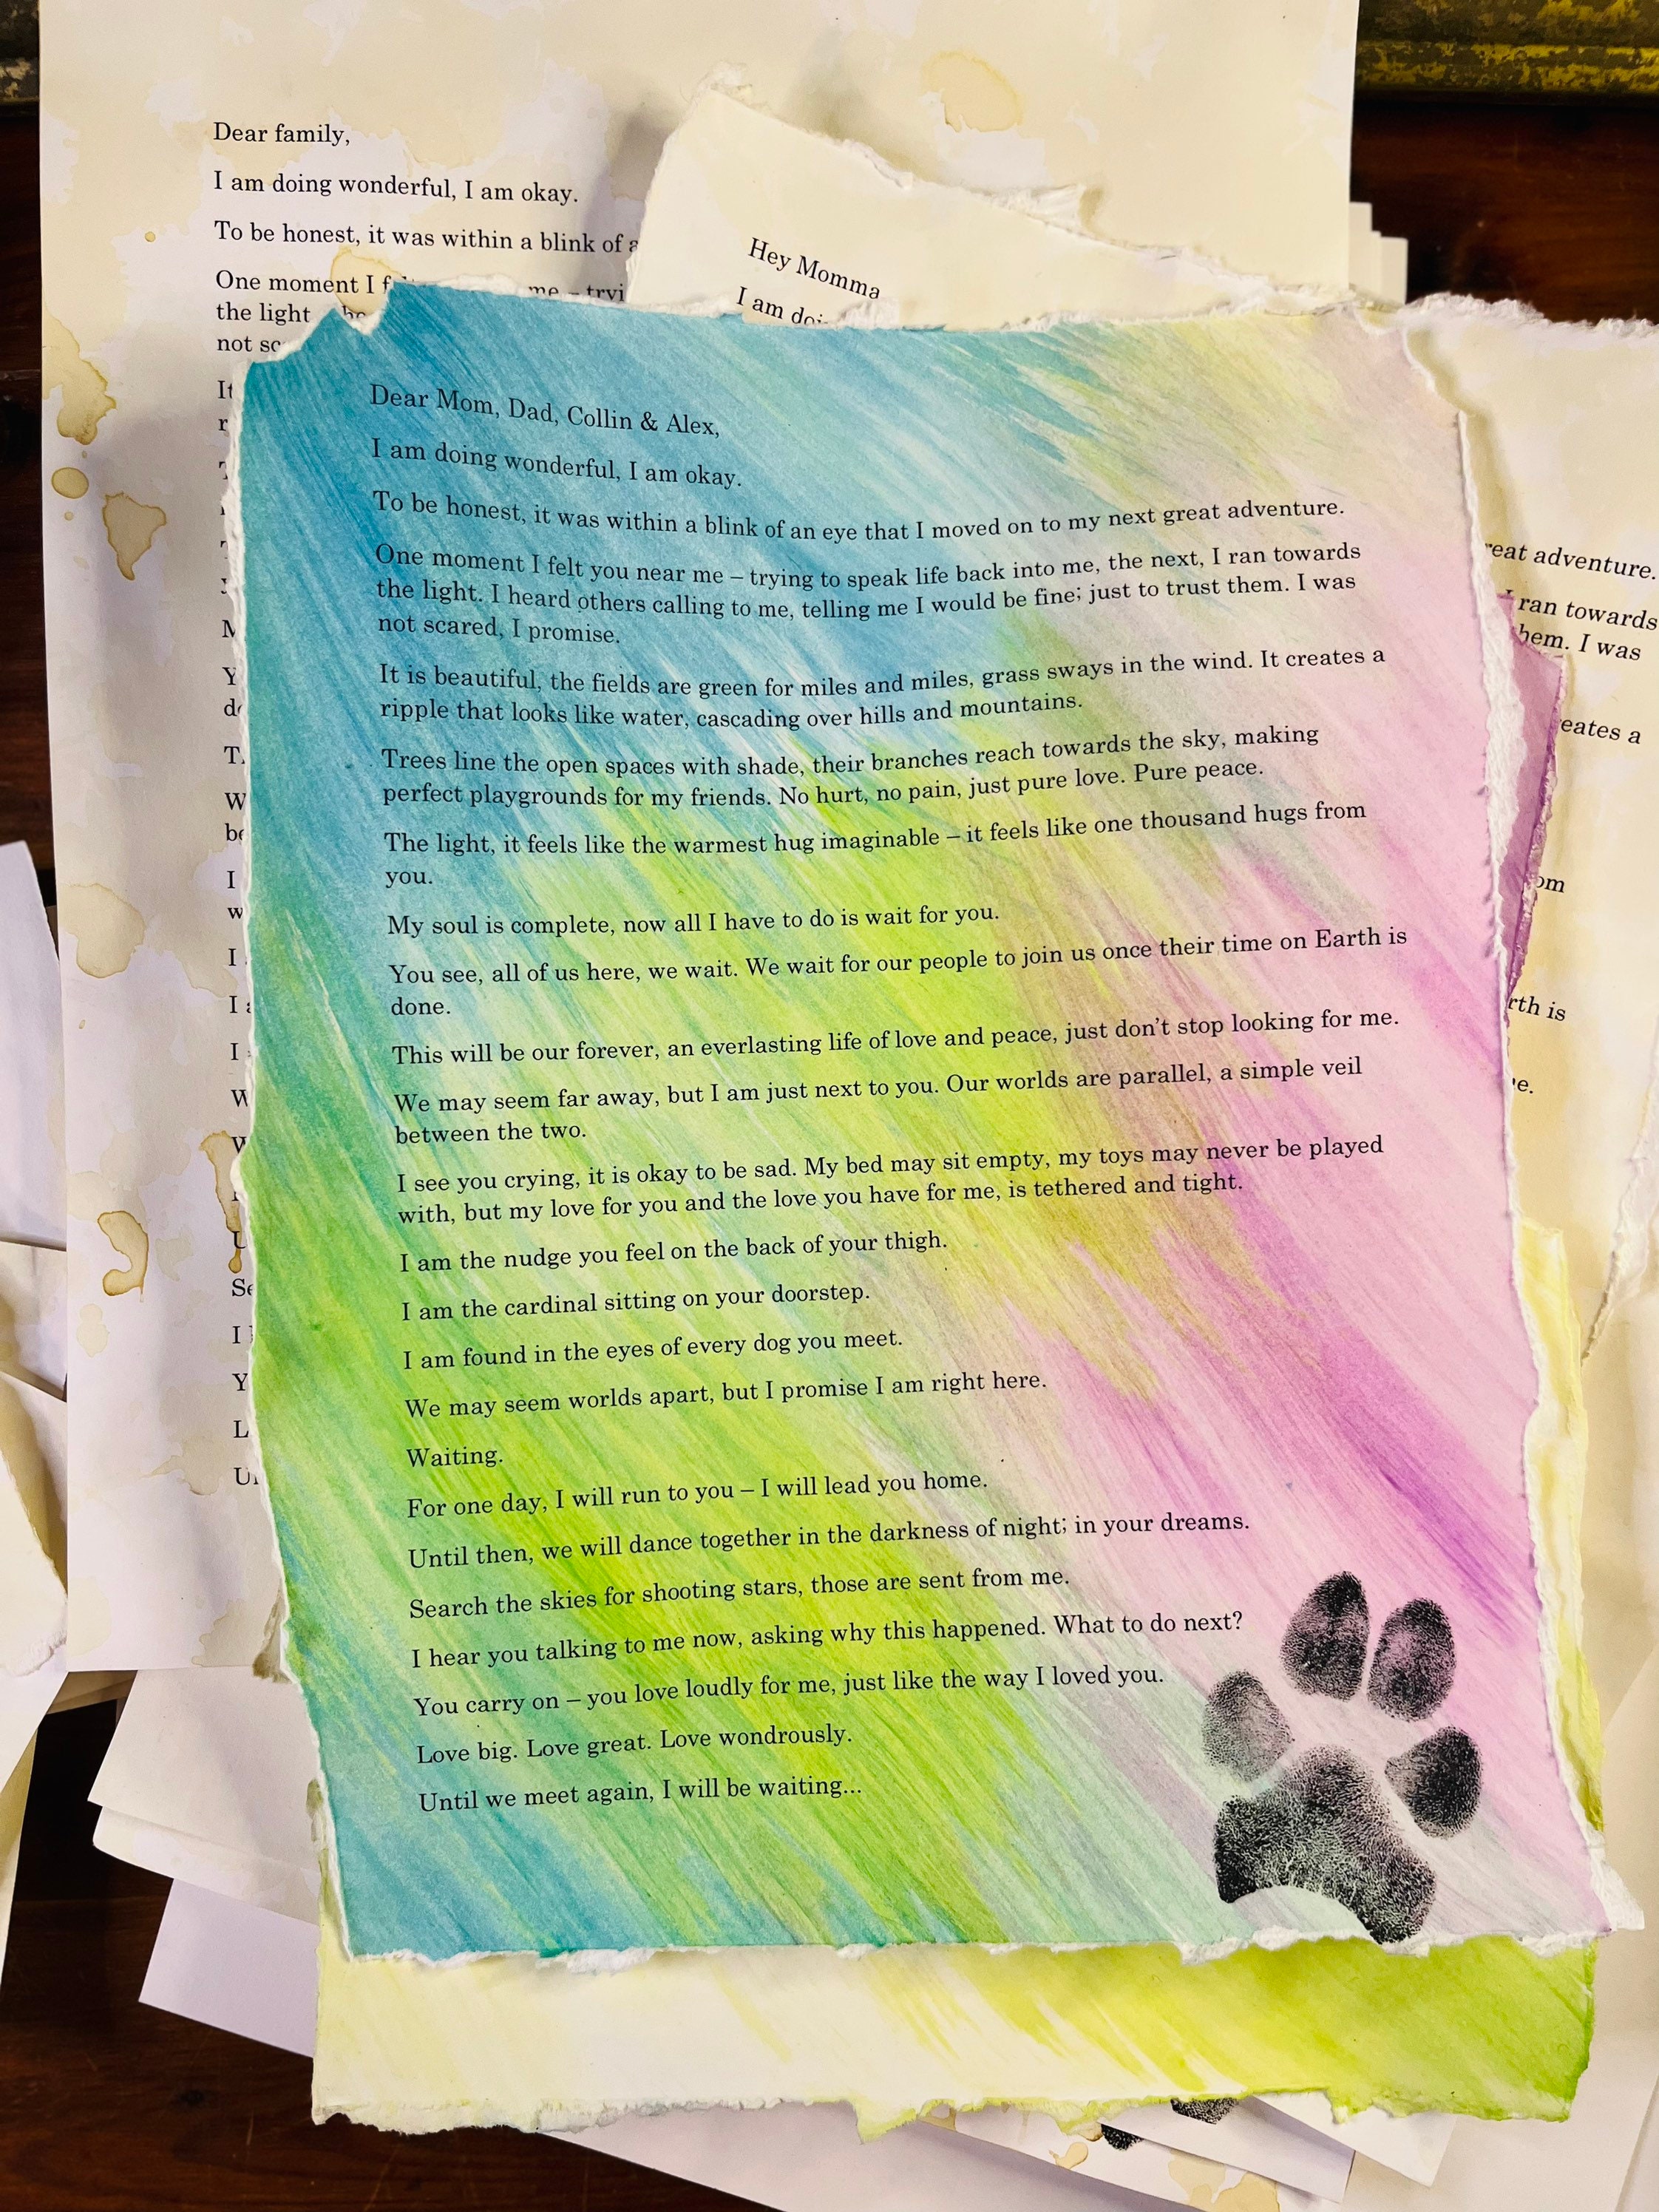 Dear family,
I am doing wonderful, I am okay.
To be honest, it was within a blink of
One moment I
the light
not
Hey Momma
I am
Dear Mom, Dad, Collin & Alex,
I am doing wonderful, I am okay.
To be honest, it was within a blink of an eye that I moved on to my next great adventure.
One moment I felt you near me – trying to speak life back into me, the next, I ran towards
the light. I heard others calling to me, telling me I would be fine; just to trust them. I was
not scared, I promise.
It is beautiful, the fields are green for miles and miles, grass sways in the wind. It creates a
ripple that looks like water, cascading over hills and mountains.
Trees line the open spaces with shade, their branches reach towards the sky, making
perfect playgrounds for my friends. No hurt, no pain, just pure love. Pure peace.
The light, it feels like the warmest hug imaginable – it feels like one thousand hugs from
you.
My soul is complete, now all I have to do is wait for you.
You see, all of us here, we wait. We wait for our people to join us once their time on Earth is
done.
This will be our forever, an everlasting life of love and peace, just don't stop looking for me.
We may seem far away, but I am just next to you. Our worlds are parallel, a simple veil
between the two.
I see you crying, it is okay to be sad. My bed may sit empty, my toys may never be played
with, but my love for you and the love you have for me, is tethered and tight.
I am the nudge you feel on the back of your thigh.
I am the cardinal sitting on your doorstep.
I am found in the eyes of every dog you meet.
We may seem worlds apart, but I promise I am right here.
Waiting.
For one day, I will run to you – I will lead you home.
Until then, we will dance together in the darkness of night; in your dreams.
Search the skies for shooting stars, those are sent from me.
I hear you talking to me now, asking why this happened. What to do next?
You carry on – you love loudly for me, just like the way I loved you.
Love big. Love great. Love wondrously.
Until we meet again, I will be waiting...
adventure.
I ran towards
them. I was
a
is